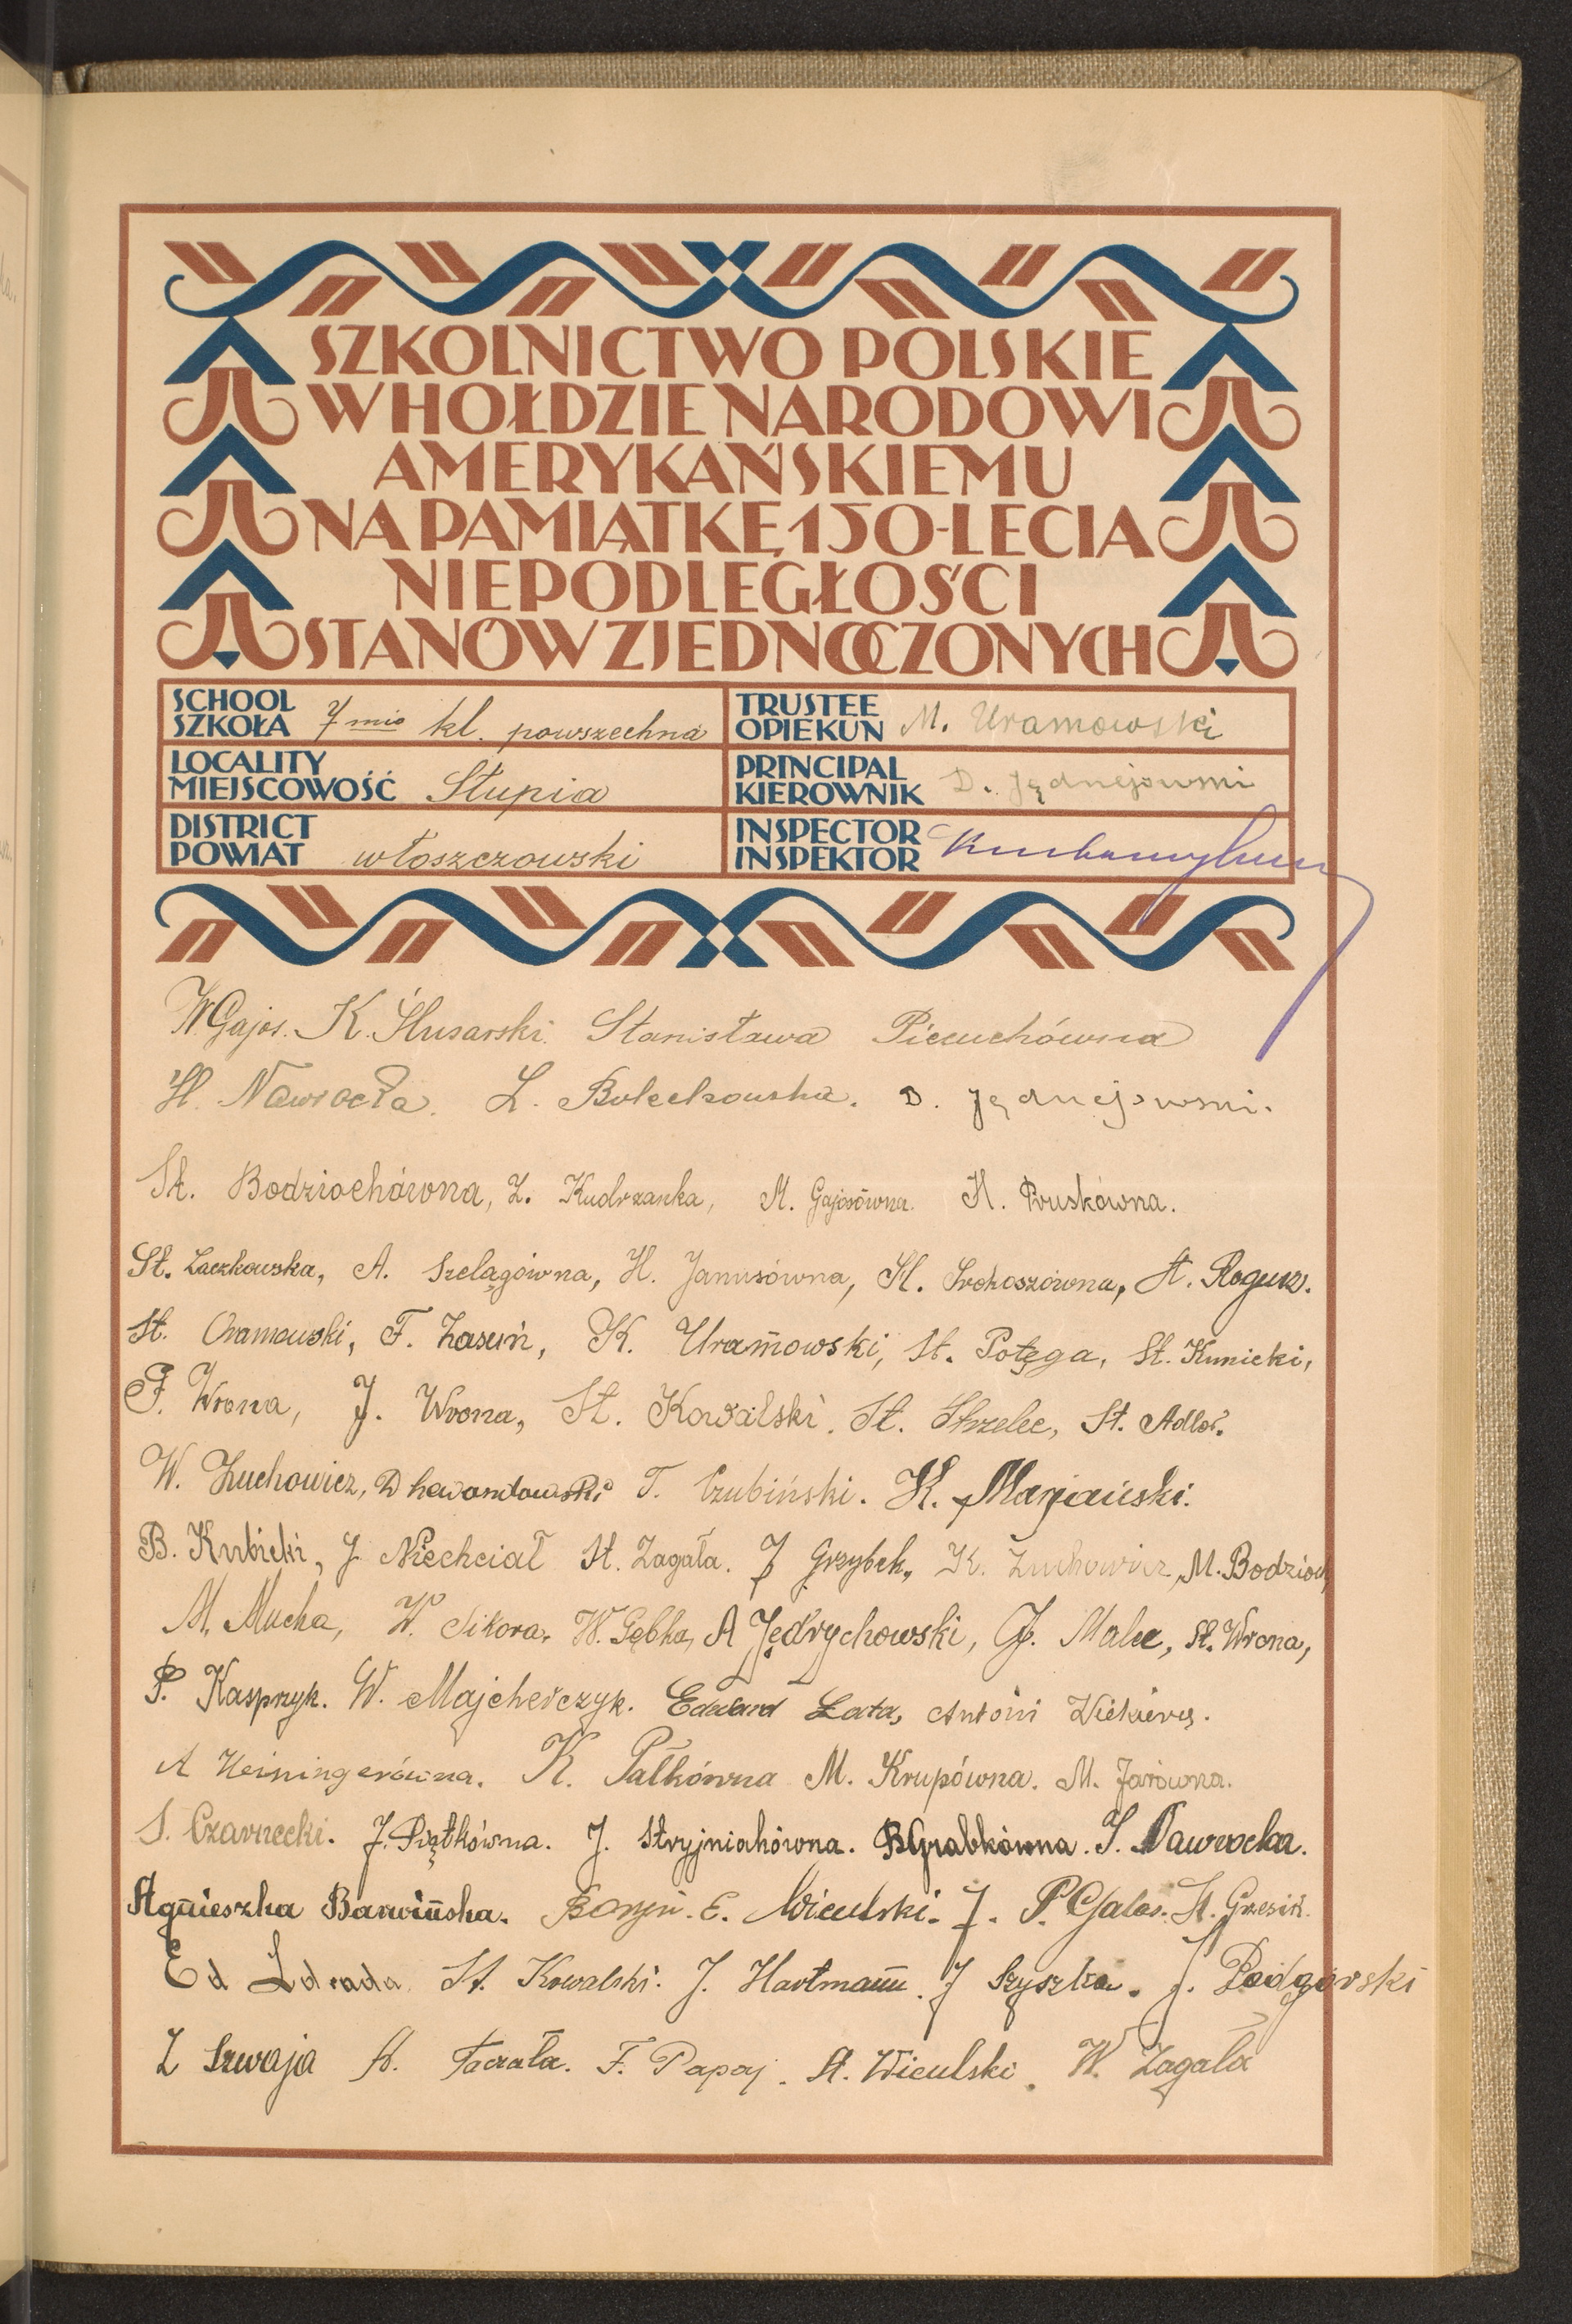 SZKOLNICTWO POLSKIE
W HOŁDZIE NARODOWI
AMERYKAŃSKIEMU
NA PAMIĄTKĘ 150-LECIA
NIEPODLEGŁOŚCI
STANÓW ZJEDNOCZONYCH
SCHOOL
SZKOŁA 7 mio kl. powszechna
TRUSTEE
OPIEKUN M. Uramowski
LOCALITY
MIEJSCOWOŚĆ Słupia
PRINCIPAL
KIEROWNIK D. Jędnejowski
DISTRICT
POWIAT włoszczowski
INSPECTOR
INSPEKTOR
W Gajos. K. Ślusarski. Stanisława Piecuchówna
H. Nawrocka. L. Bolechowska. D. Jędnejowski.
St. Bodziochówna, Z. Kudrzanka, M. Gajosówna. H. Pruskówna.
St. Laczkowska, A. Szelągówna, H. Janusówna, H. Prokoszówna, A. Rogusz.
St. Oramowski, F. Zasuń, K. Uramowski, St. Potęga, St. Kunicki,
F. Wrona, J. Wrona, St. Kowalski. St. Strzelec, St. Adlof.
W. Zuchowicz, D Lewandowski T. Czubiński. K. Marjański.
B. Kubicki, J. Niechciał St. Zagała. J Grzybek, K. Zuchowicz, M. Bodzioch
M. Mucha, W. Sikora, W. Gębka, A Jędrychowski, J. Malec, St. Wrona,
P. Kasprzyk. W. Majcherczyk. Edward Łata, Antoni
A Heiningerówna. K. Pałkówna M. Krupówna. M. Jarówna.
S. Czarnecki. J. Piątkówna. J. Stryjniakówna. B Grabkówna. S. Nawrocka.
Agnieszka Barwińska. E. Wiculski. J. P. Galas. St. Grzesik.
Ed St. Kowalski. J. Hartmann. J Szyszka. J. Podgórski
Z Szwaja A. Taczała. F. Papaj. St. Wiculski. W. Zagała